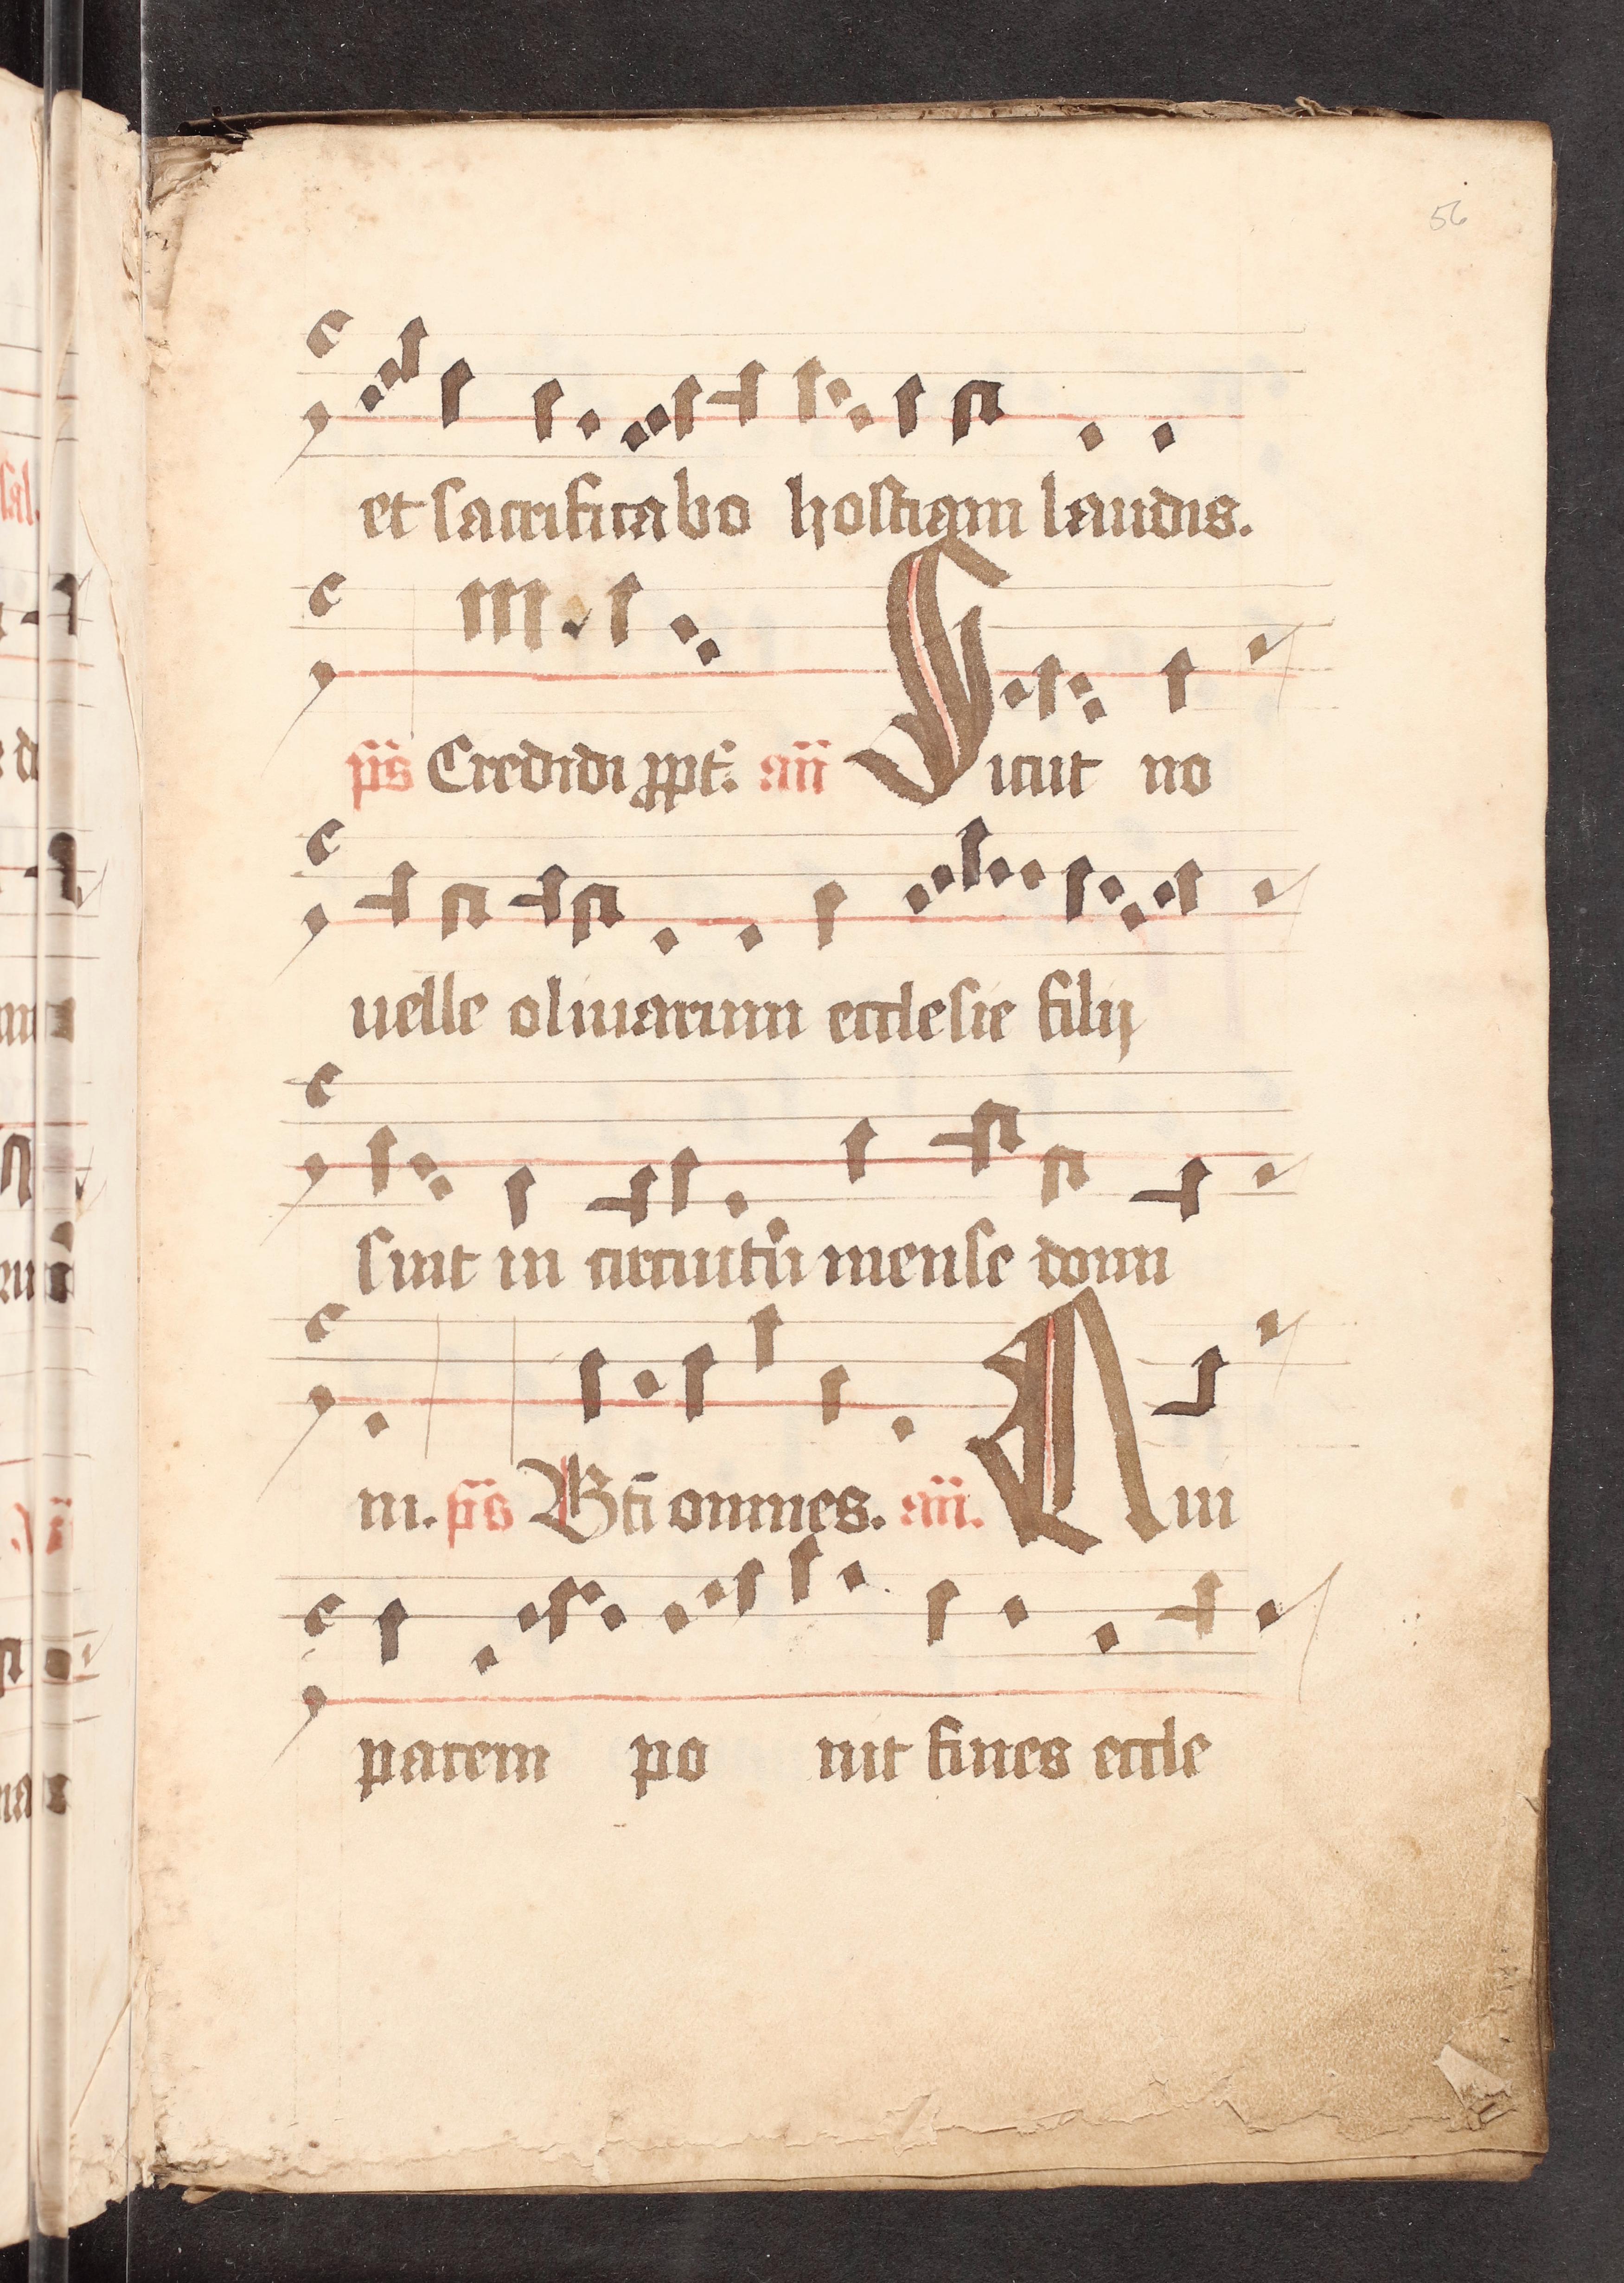 56
et sacrificabo hostiam laudis.
p̄s Credidi ꝓpt᷑. an̄ Sicut no
uelle oliuarum ecclesie filij
sint in circuitū mense domi
ni. p̄s Bt̄i omnes. an̄. Qui
pacem po nit fines eccle